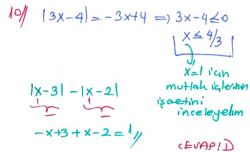 10// |3x-4| = -3x+4 ⇒ 3x-4≤0
x ≤ 4/3
x=1 için
mutlak içlerinin
işaretini
inceleyelim
|x-3| - |x-2|
-x+3 + x-2 = 1//
CEVAP: D